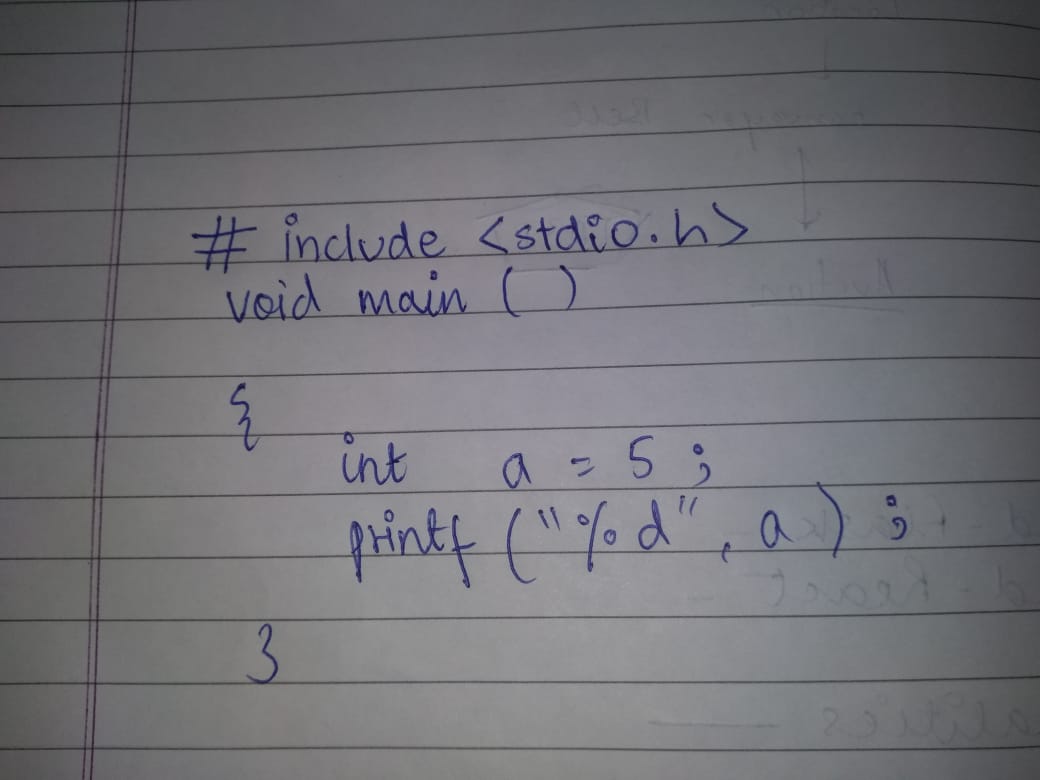 # include <stdio.h>
void main ( )
{
int a = 5 ;
printf ("%d", a) ;
}